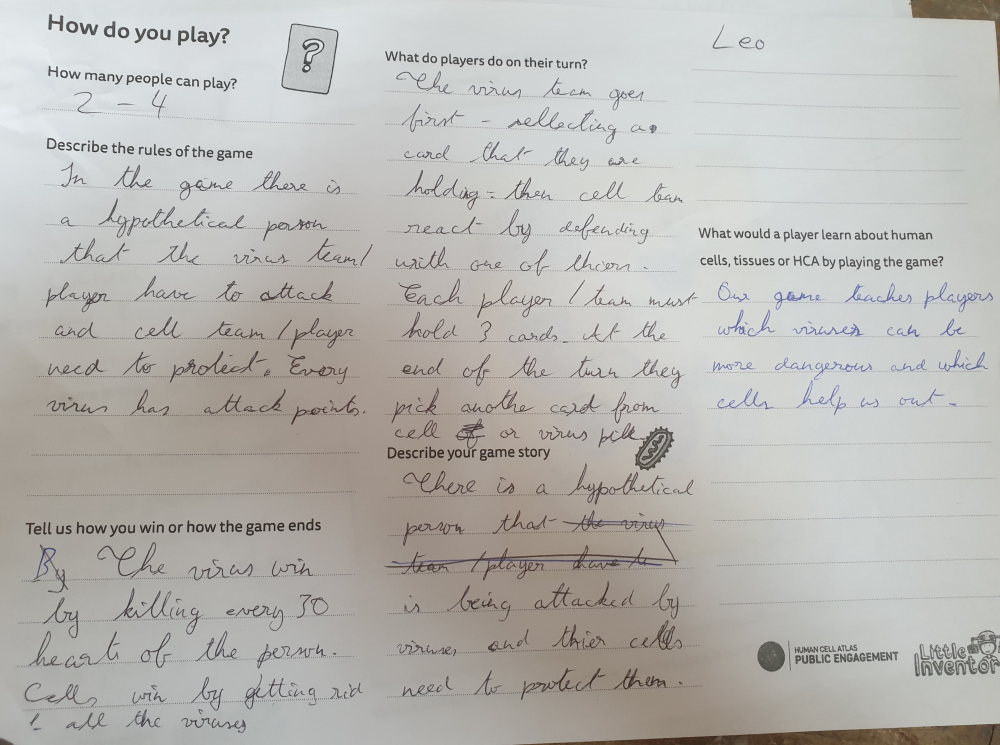 How do you play?
?
How many people can play?
2 - 4
Describe the rules of the game
In the game there is
a hypothetical person
that the virus team/
player have to attack
and cell team/player
need to protect. Every
virus has attack points.
Tell us how you win or how the game ends
By The virus win
by killing every 30
hearts of the person.
Cells win by getting rid
all the viruses
What do players do on their turn?
The virus team goes
first - sellecting a
card that they are
holding - then cell team
react by defending
with one of thiers.
Each player / team must
hold 3 cards. At the
end of the turn they
pick anothe card from
cell of or virus pill
Describe your game story
There is a hypothetical
person that the virus
team /player have to
is being attacked by
viruses and thier cells
need to protect them.
Leo
What would a player learn about human
cells, tissues or HCA by playing the game?
Our game teaches players
which viruses can be
more dangerous and which
cells help us out -
HUMAN CELL ATLAS
PUBLIC ENGAGEMENT
Little
Inventor